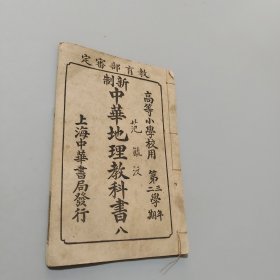 定審部育教
高等小學校用
第三年
二學期
新制
中華地理教科書八
上海中華書局發行